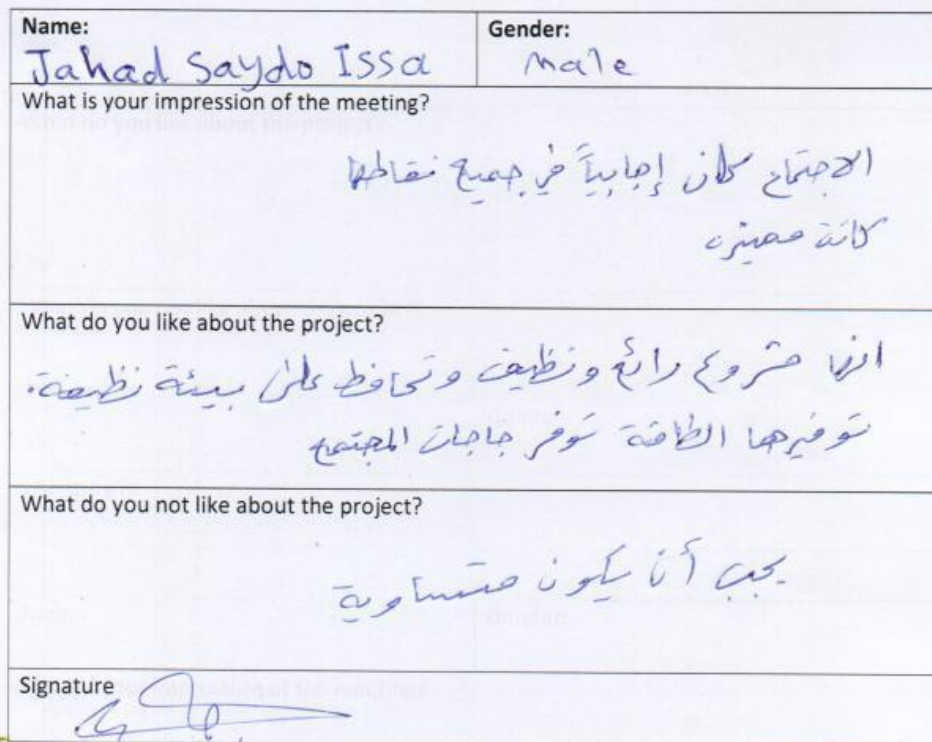 Name:
Jahad Saydo Issa
Gender:
male
What is your impression of the meeting?
الاجتماع كان إجابياً في جميع نقاطها
كانة مميزه
What do you like about the project?
انها مشروع رائع ونظيف وتحافظ على بيئة نظيفة.
توفيرها الطاقة توفر حاجات المجتمع
What do you not like about the project?
يجب أن يكون متساوية
Signature